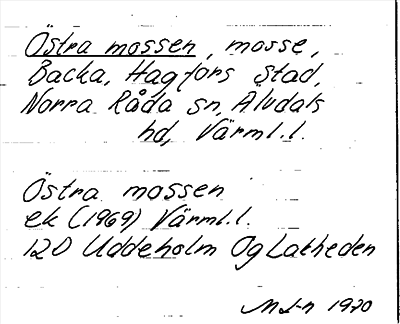 Östra mossen, mosse,
Backa, Hagfors stad,
Norra Råda sn, Älvdals
hd, Värml.l.
Östra mossen
ek (1969) Värml.l.
12D Uddeholm Og Lakheden
1970